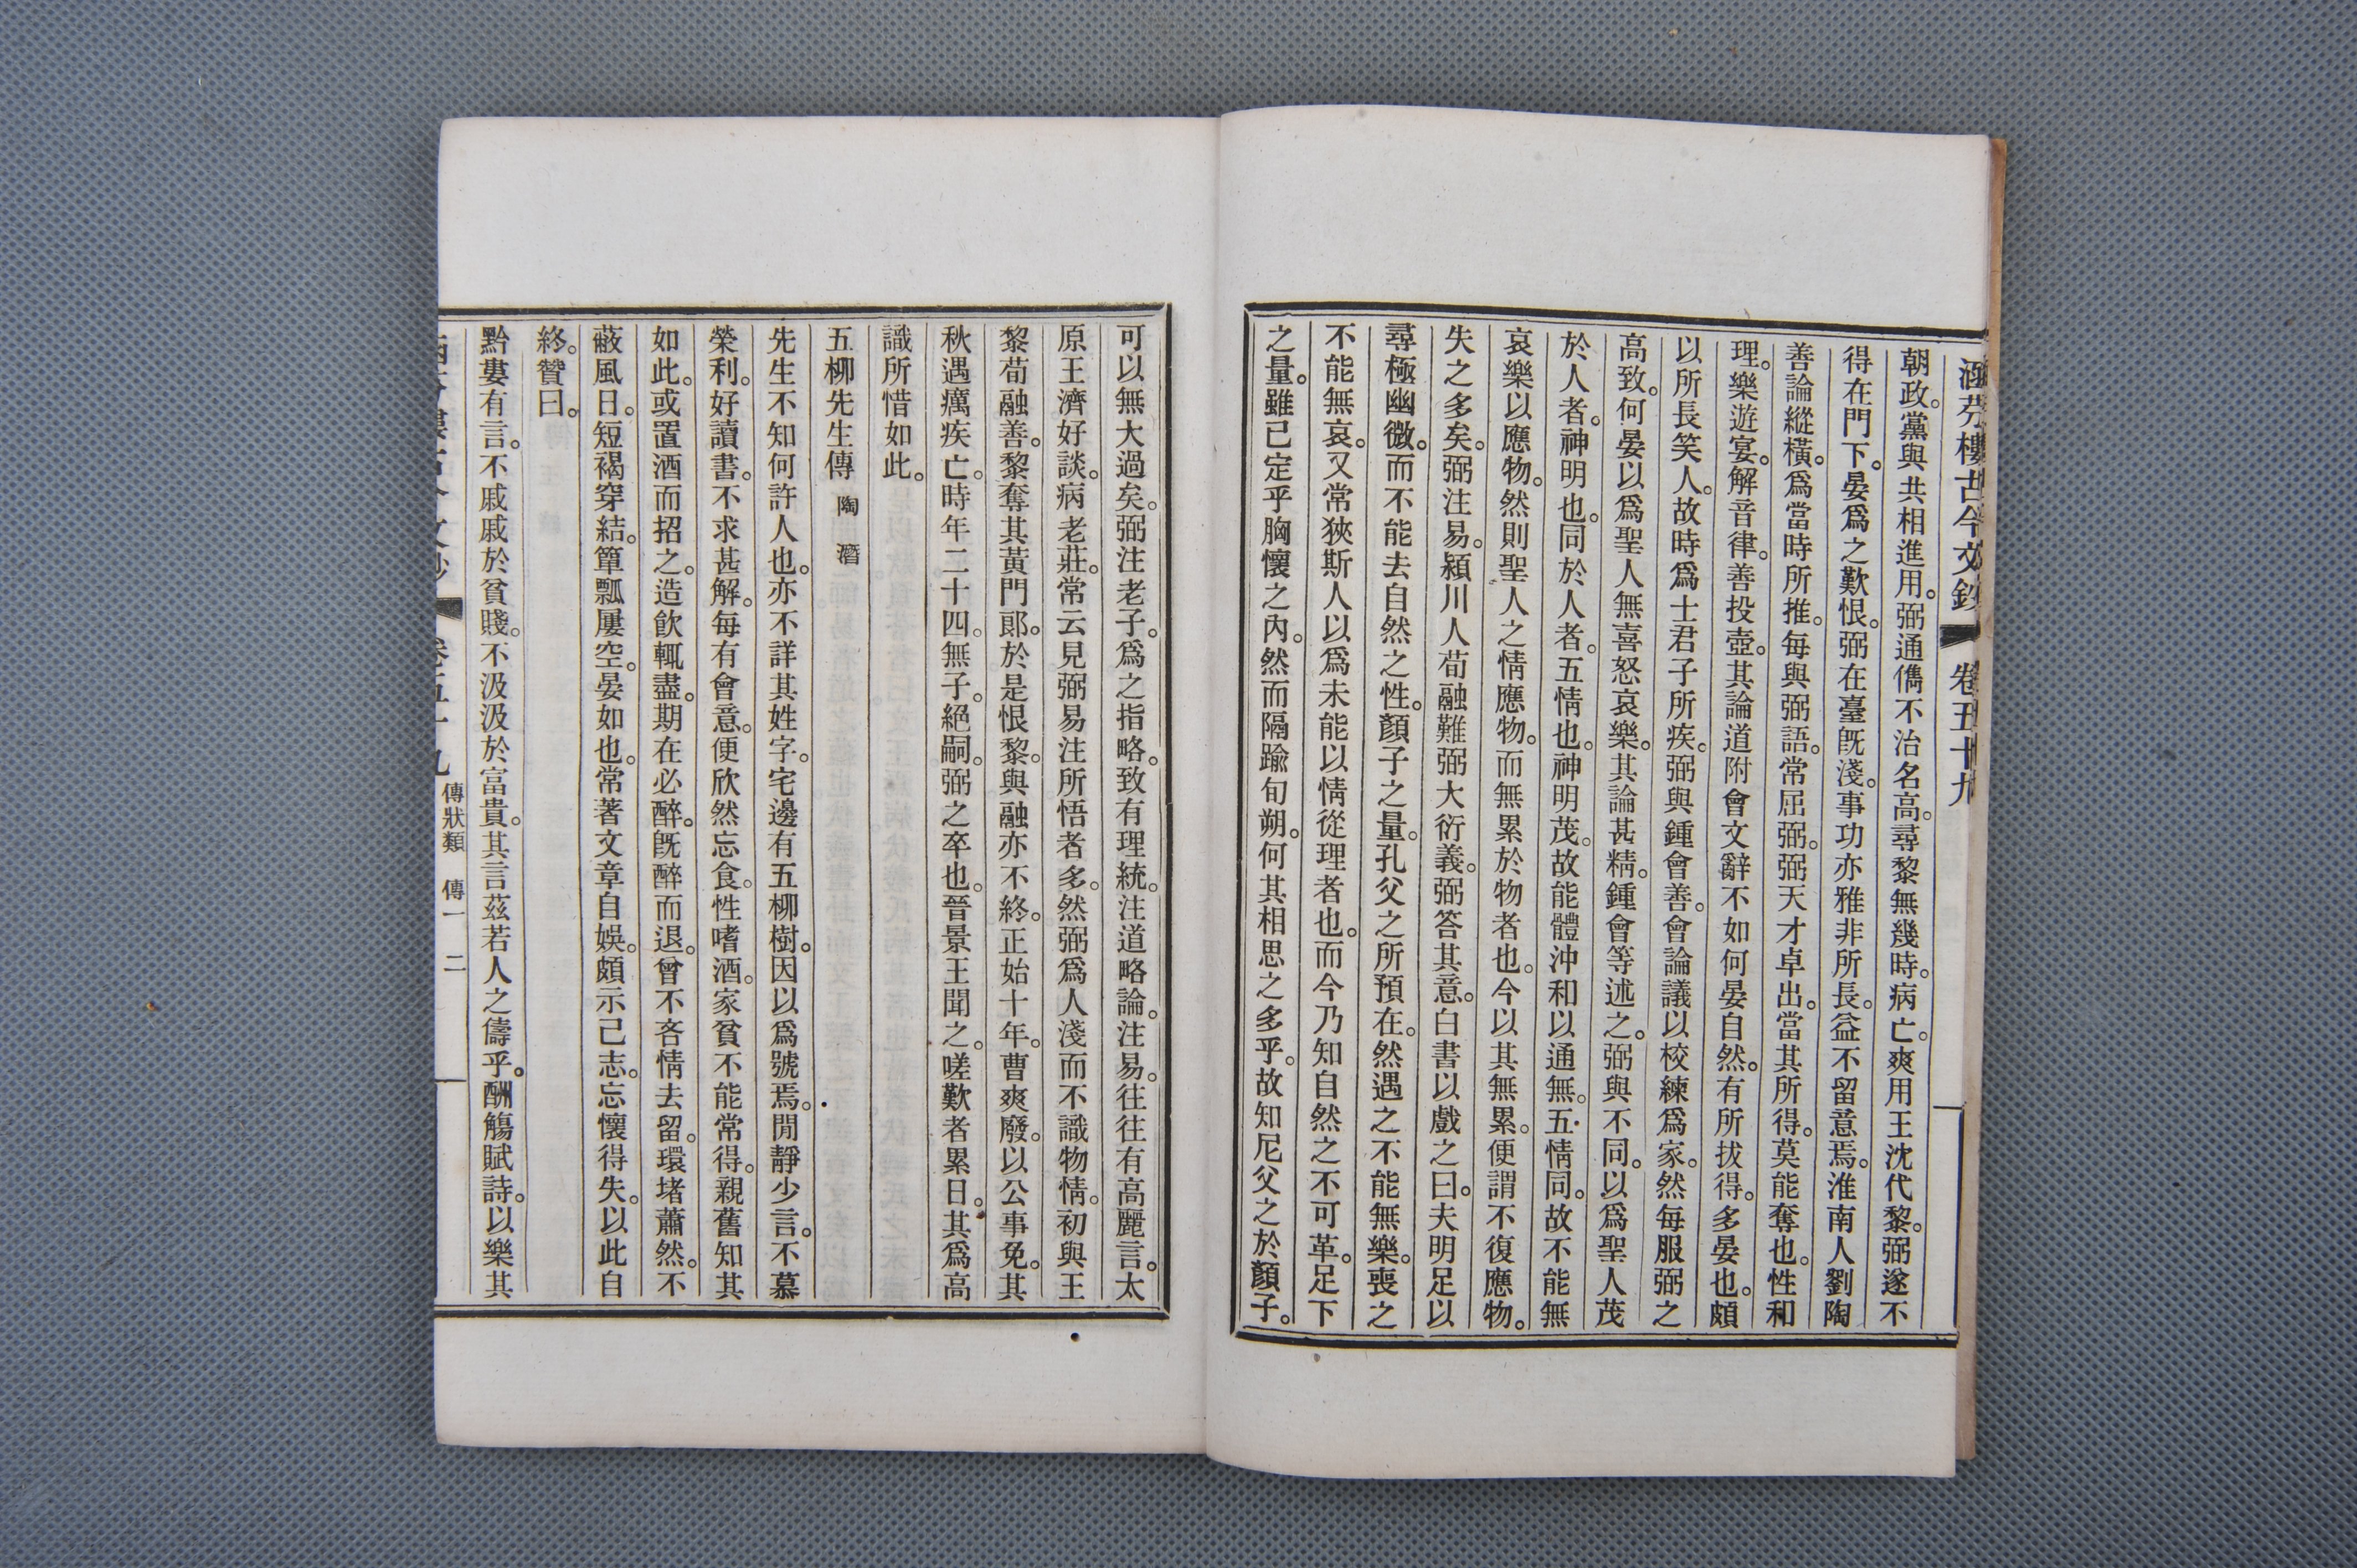 涵芬樓古今文鈔 卷五十九
朝政。黨與共相進用。弼通儁不治名高。尋黎無幾時。病亡。爽用王沈代黎。弼遂不
得在門下。晏爲之歎恨。弼在臺旣淺。事功亦雅非所長。益不留意焉。淮南人劉陶
善論縱橫。爲當時所推。每與弼語。常屈弼。弼天才卓出。當其所得。莫能奪也。性和
理。樂遊宴。解音律。善投壺。其論道附會文辭不如何晏自然。有所拔得。多晏也。頗
以所長笑人。故時爲士君子所疾。弼與鍾會善。會論議以校練爲家。然每服弼之
高致。何晏以爲聖人無喜怒哀樂。其論甚精。鍾會等述之。弼與不同。以爲聖人茂
於人者。神明也。同於人者。五情也。神明茂。故能體沖和以通無。五情同。故不能無
哀樂以應物。然則聖人之情應物。而無累於物者也。今以其無累。便謂不復應物。
失之多矣。弼注易。潁川人荀融難弼大衍義。弼答其意。白書以戲之曰。夫明足以
尋極幽微。而不能去自然之性。顏子之量。孔父之所預在。然遇之不能無樂。喪之
不能無哀。又常狹斯人以爲未能以情從理者也。而今乃知自然之不可革。足下
之量。雖已定乎胸懷之內。然而隔踰旬朔。何其相思之多乎。故知尼父之於顏子。
可以無大過矣。弼注老子。爲之指略。致有理統。注道略論。注易。往往有高麗言。太
原王濟好談。病老莊。常云見弼易注所悟者多。然弼爲人淺而不識物情。初與王
黎荀融善。黎奪其黃門郞。於是恨黎。與融亦不終。正始十年。曹爽廢。以公事免。其
秋遇癘疾亡。時年二十四。無子。絕嗣。弼之卒也。晉景王聞之。嗟歎者累日。其爲高
識所惜如此。
五柳先生傳 陶潛
先生不知何許人也。亦不詳其姓字。宅邊有五柳樹。因以爲號焉。閒靜少言。不慕
榮利。好讀書。不求甚解。每有會意。便欣然忘食。性嗜酒。家貧不能常得。親舊知其
如此。或置酒而招之。造飮輒盡。期在必醉。旣醉而退。曾不吝情去留。環堵蕭然。不
蔽風日。短褐穿結。簞瓢屢空。晏如也。常著文章自娛。頗示己志。忘懷得失。以此自
終。贊曰。
黔婁有言。不戚戚於貧賤。不汲汲於富貴。其言茲若人之儔乎。酬觴賦詩。以樂其
涵芬樓古今文鈔 卷五十九 傳狀類 傳一 二